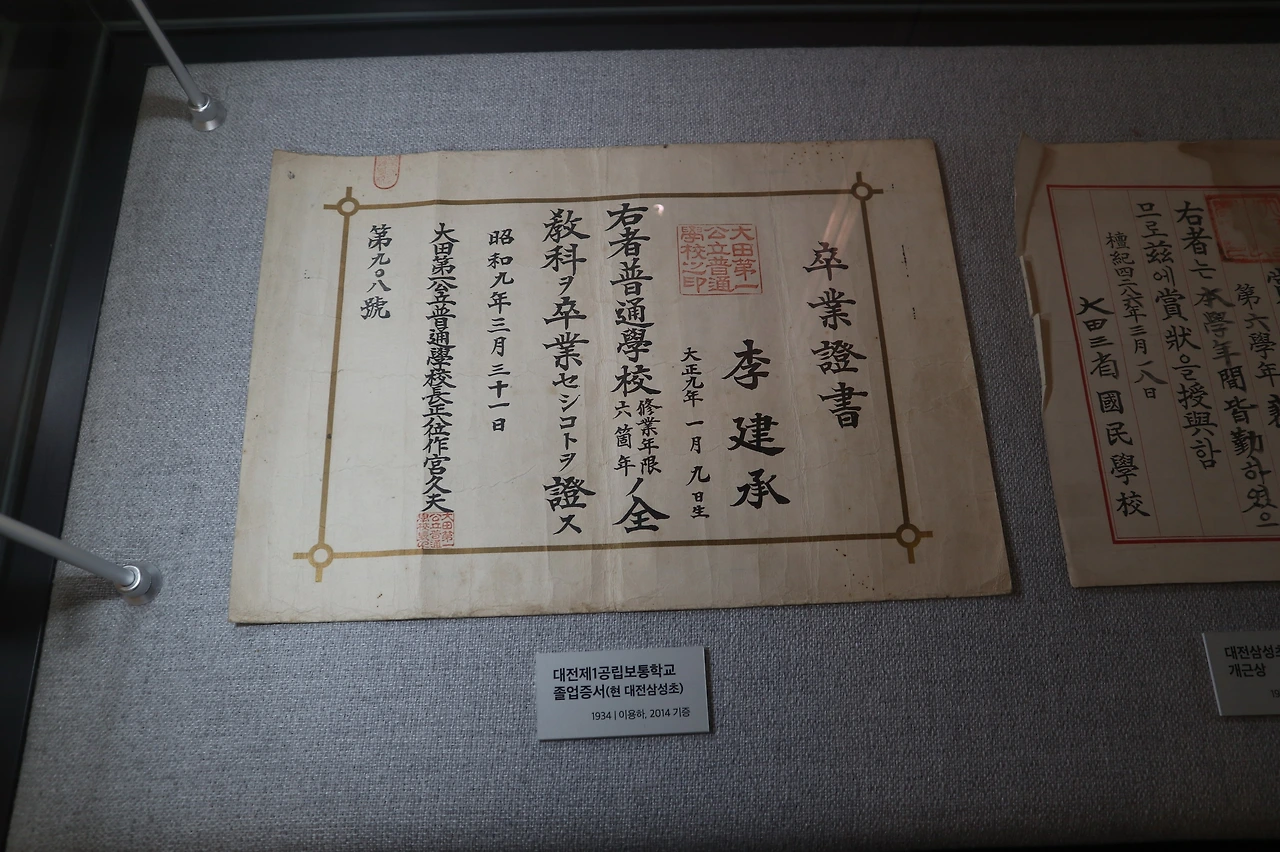 卒業證書
李建承
大正九年一月九日生
大田第一
公立普通
學校之印
右者普通學校修業年限六箇年ノ全
教科ヲ卒業セシコトヲ證ス
昭和九年三月三十一日
大田第一公立普通學校長正八位作宮久夫
第九〇八號
第六學年
右者는本學年間皆勤하였으
므로玆에賞狀을授與함
檀紀四二八六年三月一八日
大田三省國民學校
대전제1공립보통학교
졸업증서(현 대전삼성초)
1934 | 이용하, 2014 기증
대전삼성초
개근상